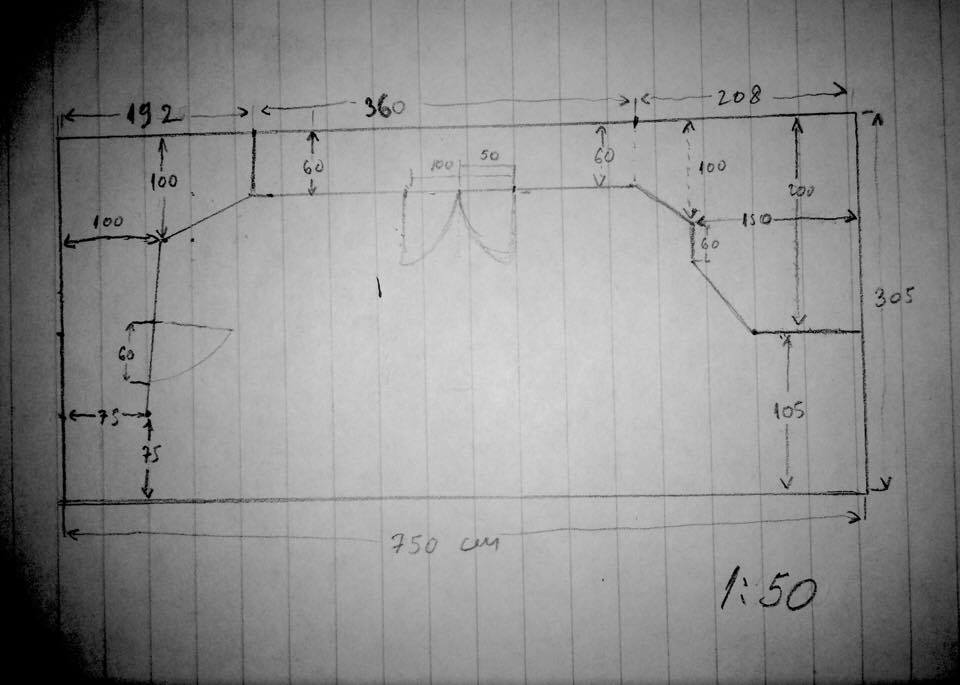 192 360 208
60 60
100 50
100 100
200
100 150
60
305
60
75 105
75
750 cm
1:50